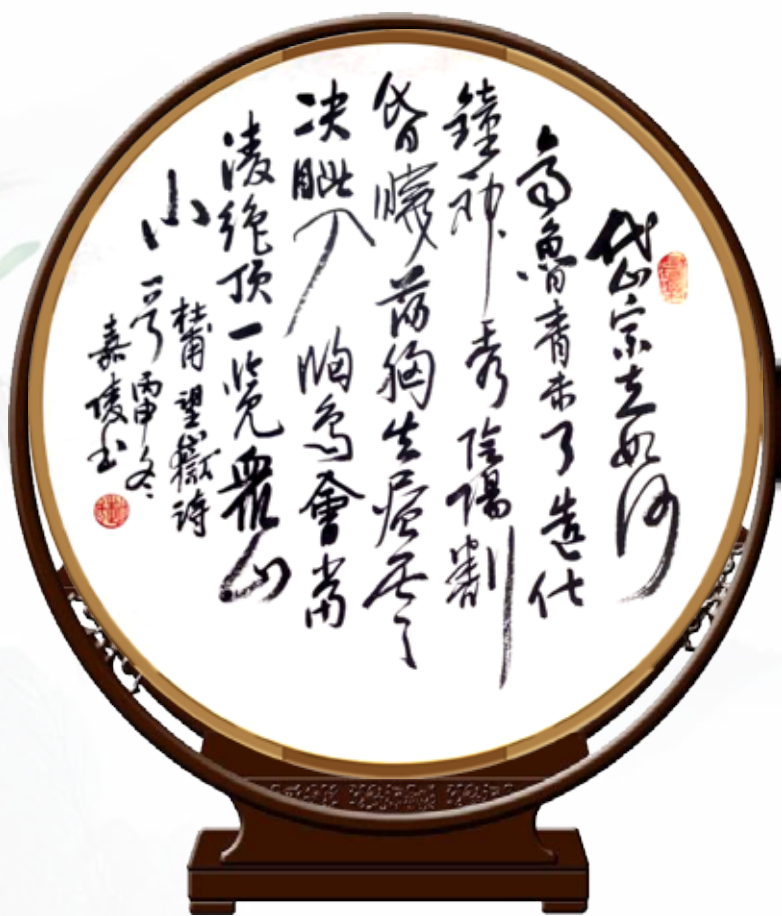 岱宗夫如何
齊魯青未了造化
鐘神秀陰陽割
昏曉荡胸生层云
决眦入歸鳥會當
凌绝顶一览眾山
小
杜甫望嶽詩
丙申冬
嘉陵书